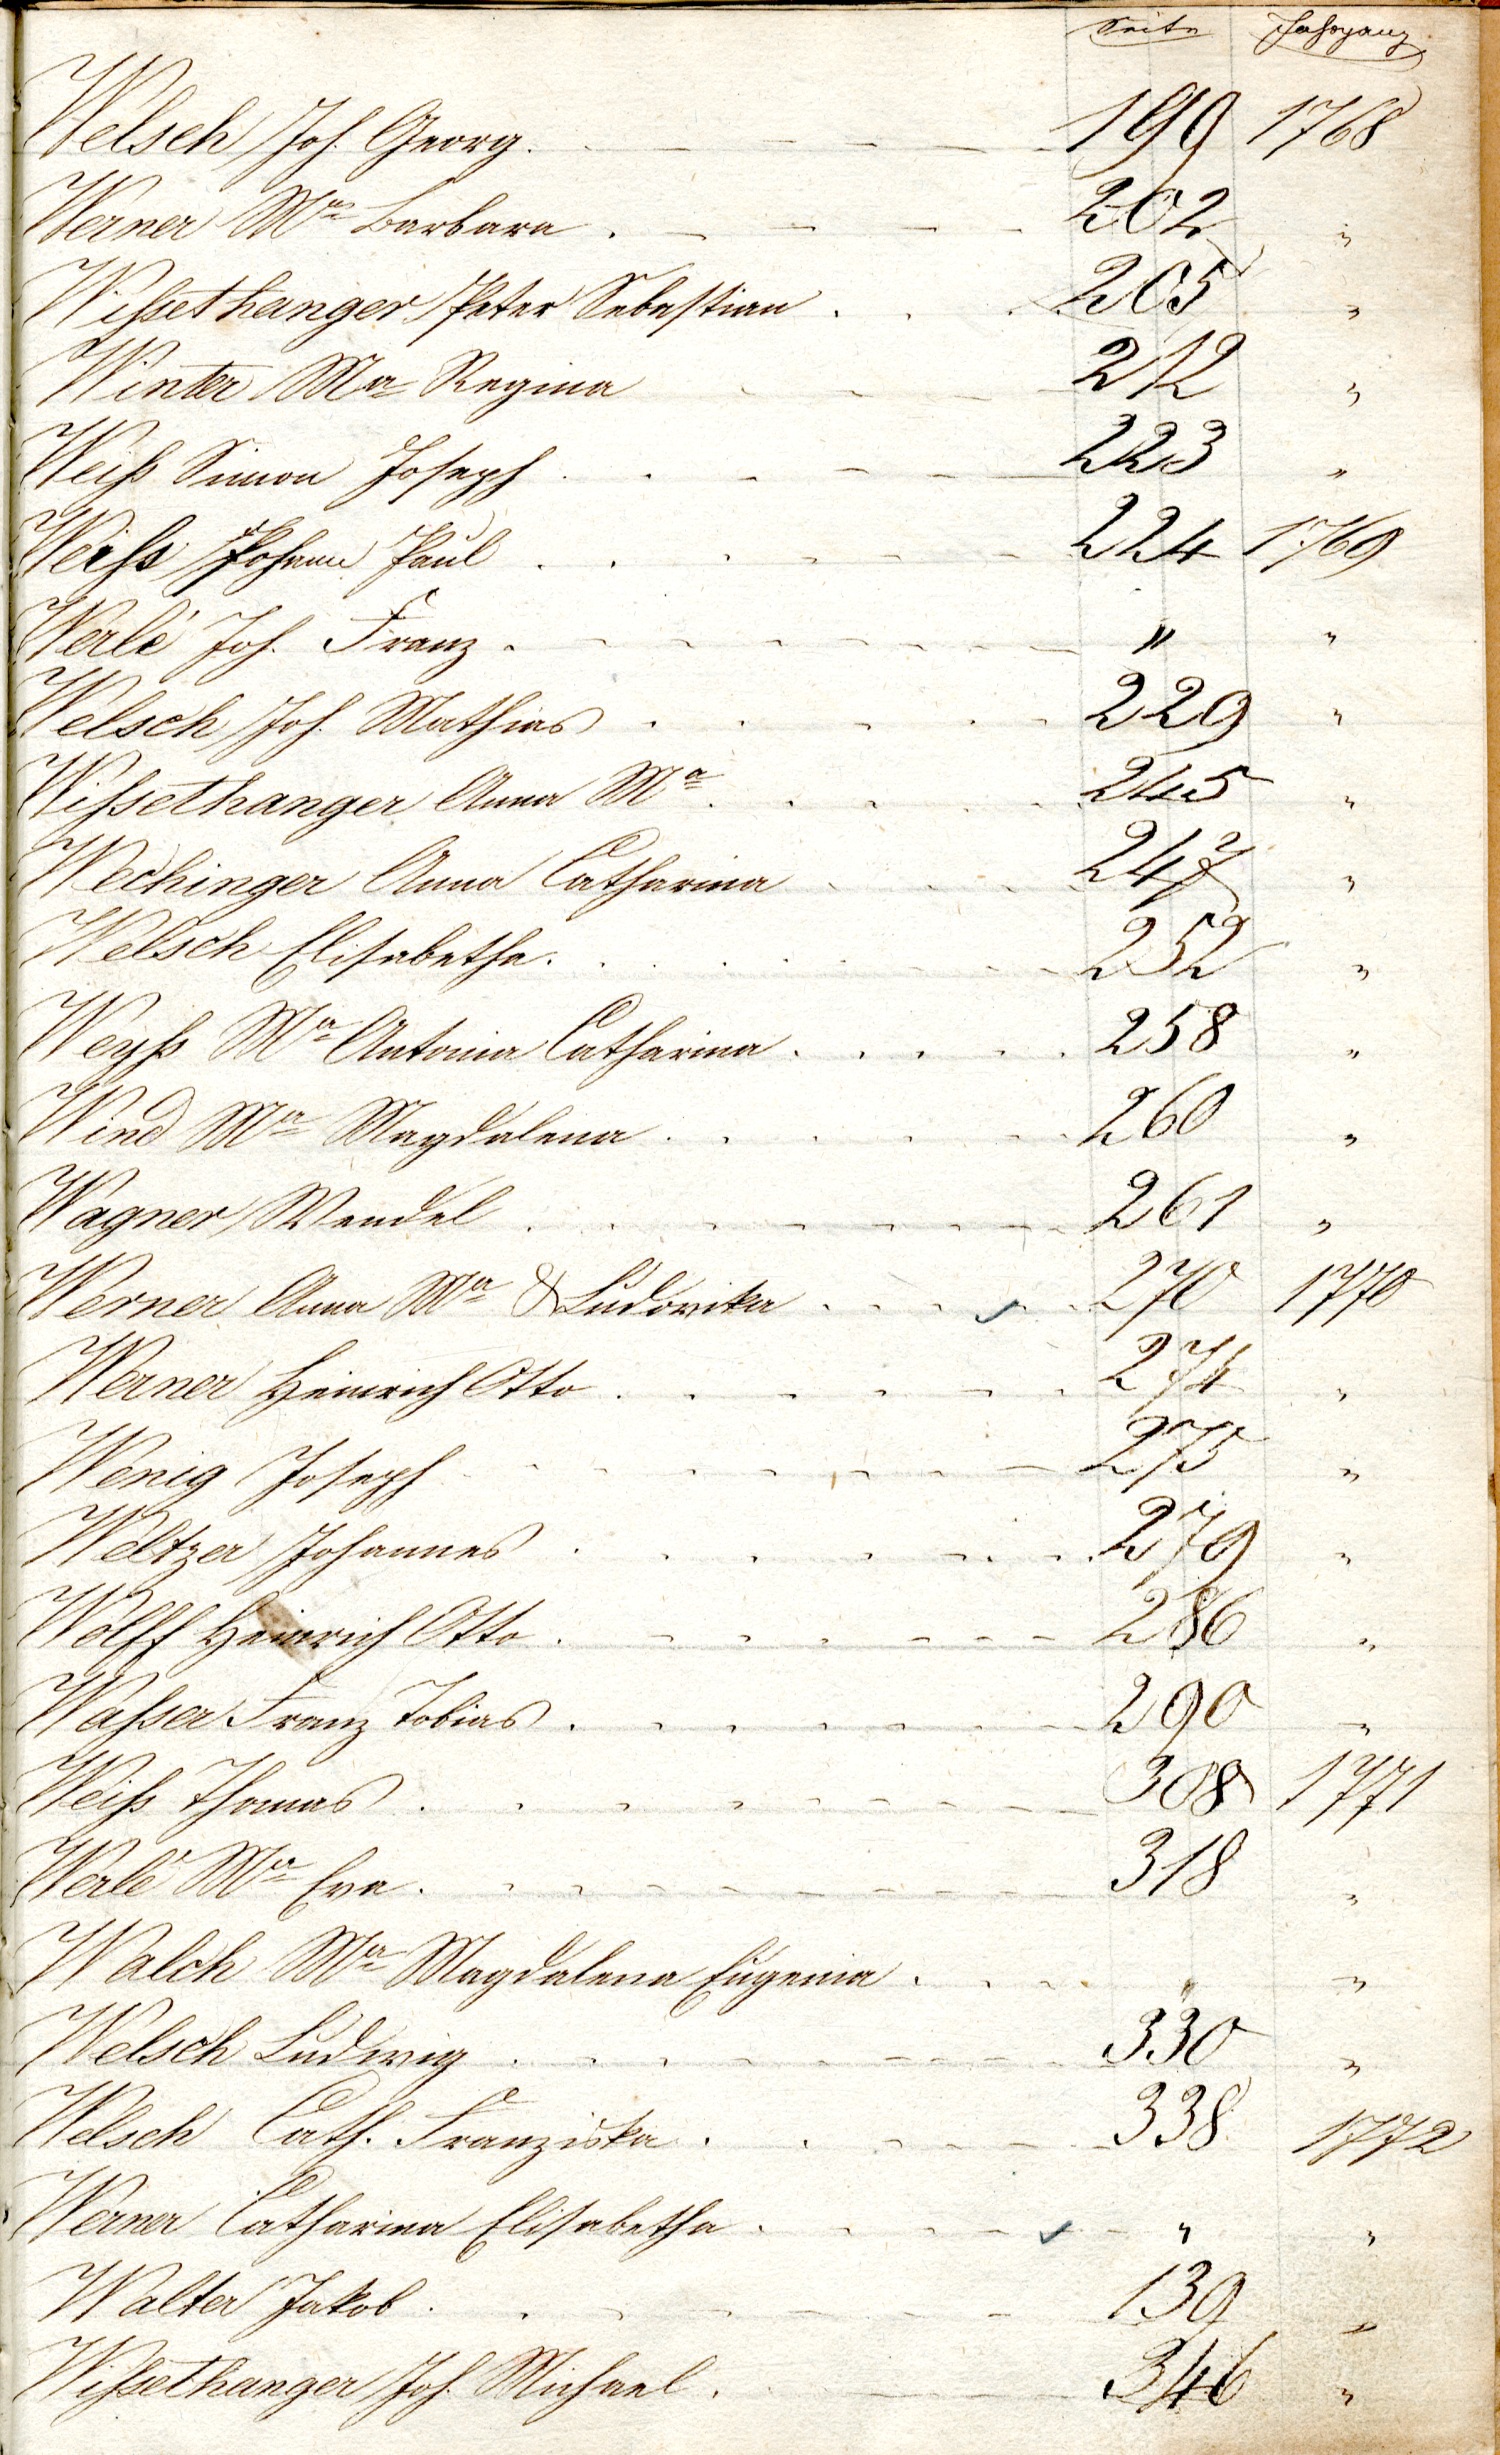 Seite Jahrgang
Welsch Joh. Georg. 199 1768
Werner Ma Barbara . 202 "
Wißethanger Peter Sebastian . 205 "
Winter Ma Regina 212 "
Weiß Simon Joseph 223 "
Weiß Johann Paul . 224 1769
Werlé Joh. Franz . " "
Welsch Joh. Mathias . 229 "
Wißethanger Anna Ma . 245 "
Wechinger Anna Catharina 247 "
Welsch Elisabetha . 252 "
Weyß Ma Antonia Catharina . 258 "
Wind Ma Magdalena . 260 "
Wagner Wendel . 261 "
Werner Anna Ma & Ludovika . 270 1770
Werner Heinrich Otto . 274 "
Wenig Joseph 275 "
Weltzer Johannes . 279 "
Wolff Heinrich Otto . 286 "
Waßer Franz Tobias . 290 "
Weiß Thomas . 308 1771
Werlé Ma Eva . 318 "
Walch Ma Magdalena Eugenia . " "
Welsch Ludwig . 330 "
Welsch Cath. Franziska . 338 1772
Werner Catharina Elisabetha . " "
Walter Jakob . 139 "
Wißethanger Joh. Michael . 346 "